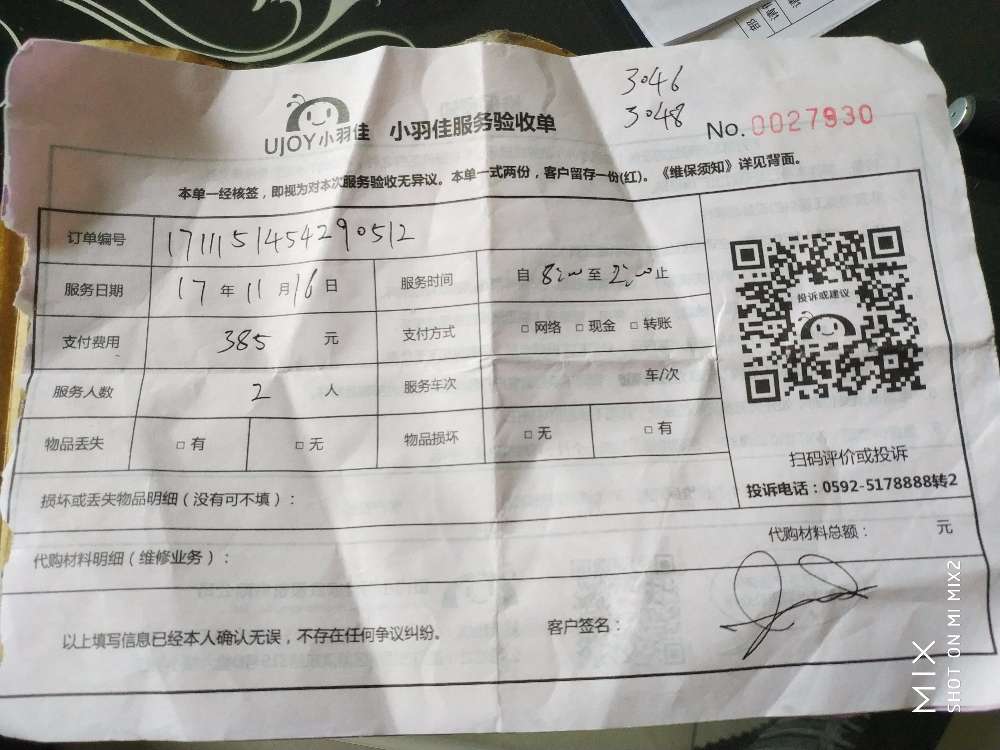 3046
3048
UJOY小羽佳 小羽佳服务验收单
No.0027930
本单一经核签，即视为对本次服务验收无异议。本单一式两份，客户留存一份(红)。《维保须知》详见背面。
订单编号 1711151454290512
服务日期 17年11月16日 服务时间 自8:00至2:00止
支付费用 385 元 支付方式 □网络 □现金 □转账
服务人数 2 人 服务车次 车/次
物品丢失 □有 □无 物品损坏 □无 □有
投诉或建议
扫码评价或投诉
投诉电话：0592-5178888转2
损坏或丢失物品明细（没有可不填）：
代购材料明细（维修业务）：
代购材料总额： 元
以上填写信息已经本人确认无误，不存在任何争议纠纷。 客户签名：
MIX
SHOT ON MI MIX2